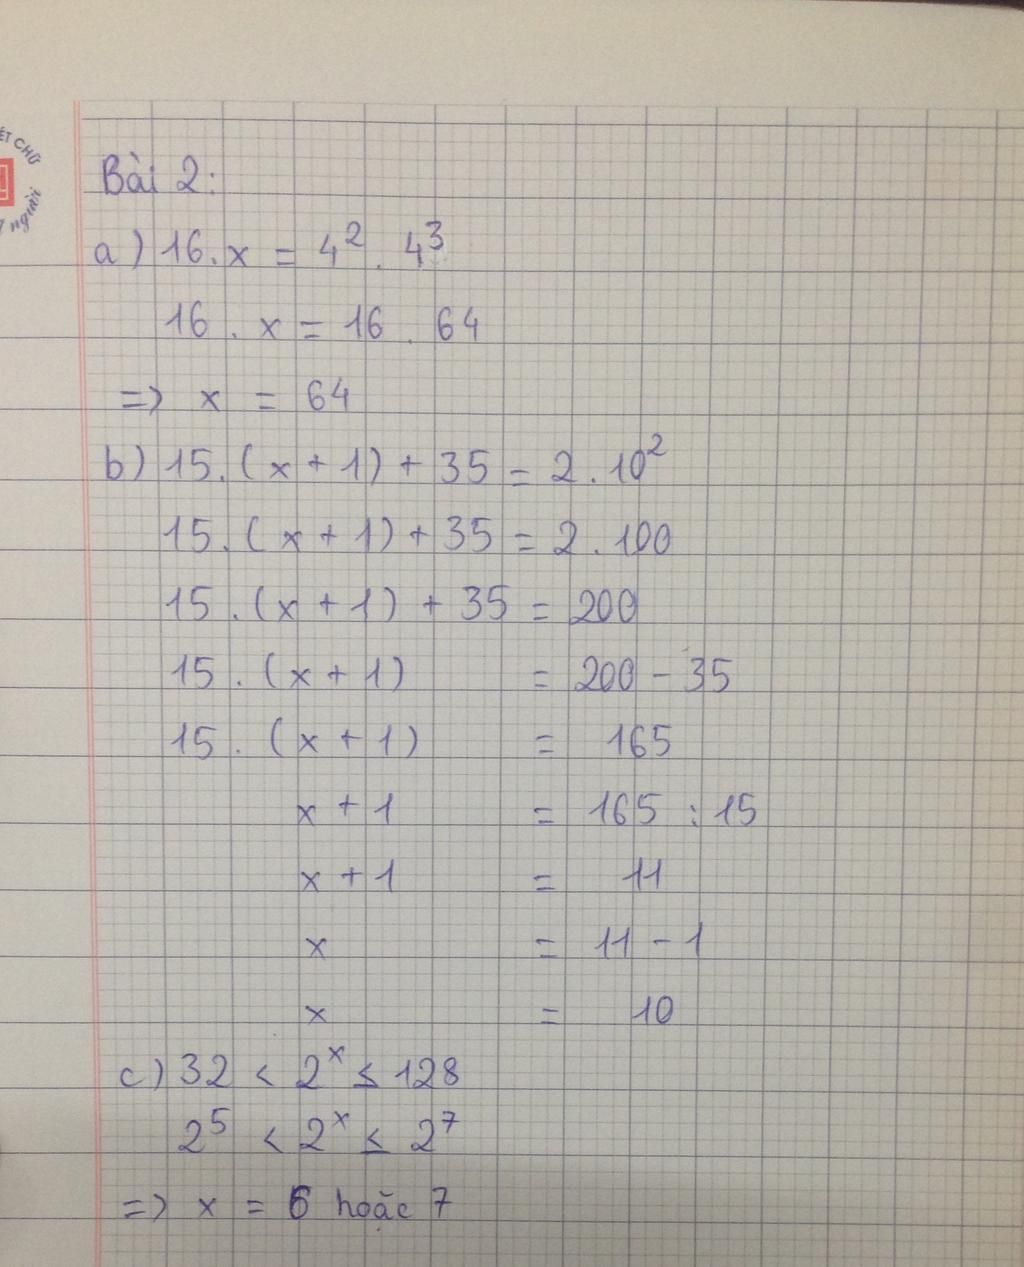 ẾT CHỮ
người
Bài 2:
a) 16.x = 4². 4³
16 . x = 16 . 64
=> x = 64
b) 15.(x + 1) + 35 = 2 . 10²
15.(x + 1) + 35 = 2 . 100
15 .(x + 1) + 35 = 200
15 . (x + 1) = 200 - 35
15 . (x + 1) = 165
x + 1 = 165 : 15
x + 1 = 11
x = 11 - 1
x = 10
c) 32 < 2ˣ ≤ 128
2⁵ < 2ˣ ≤ 2⁷
=> x = 6 hoặc 7